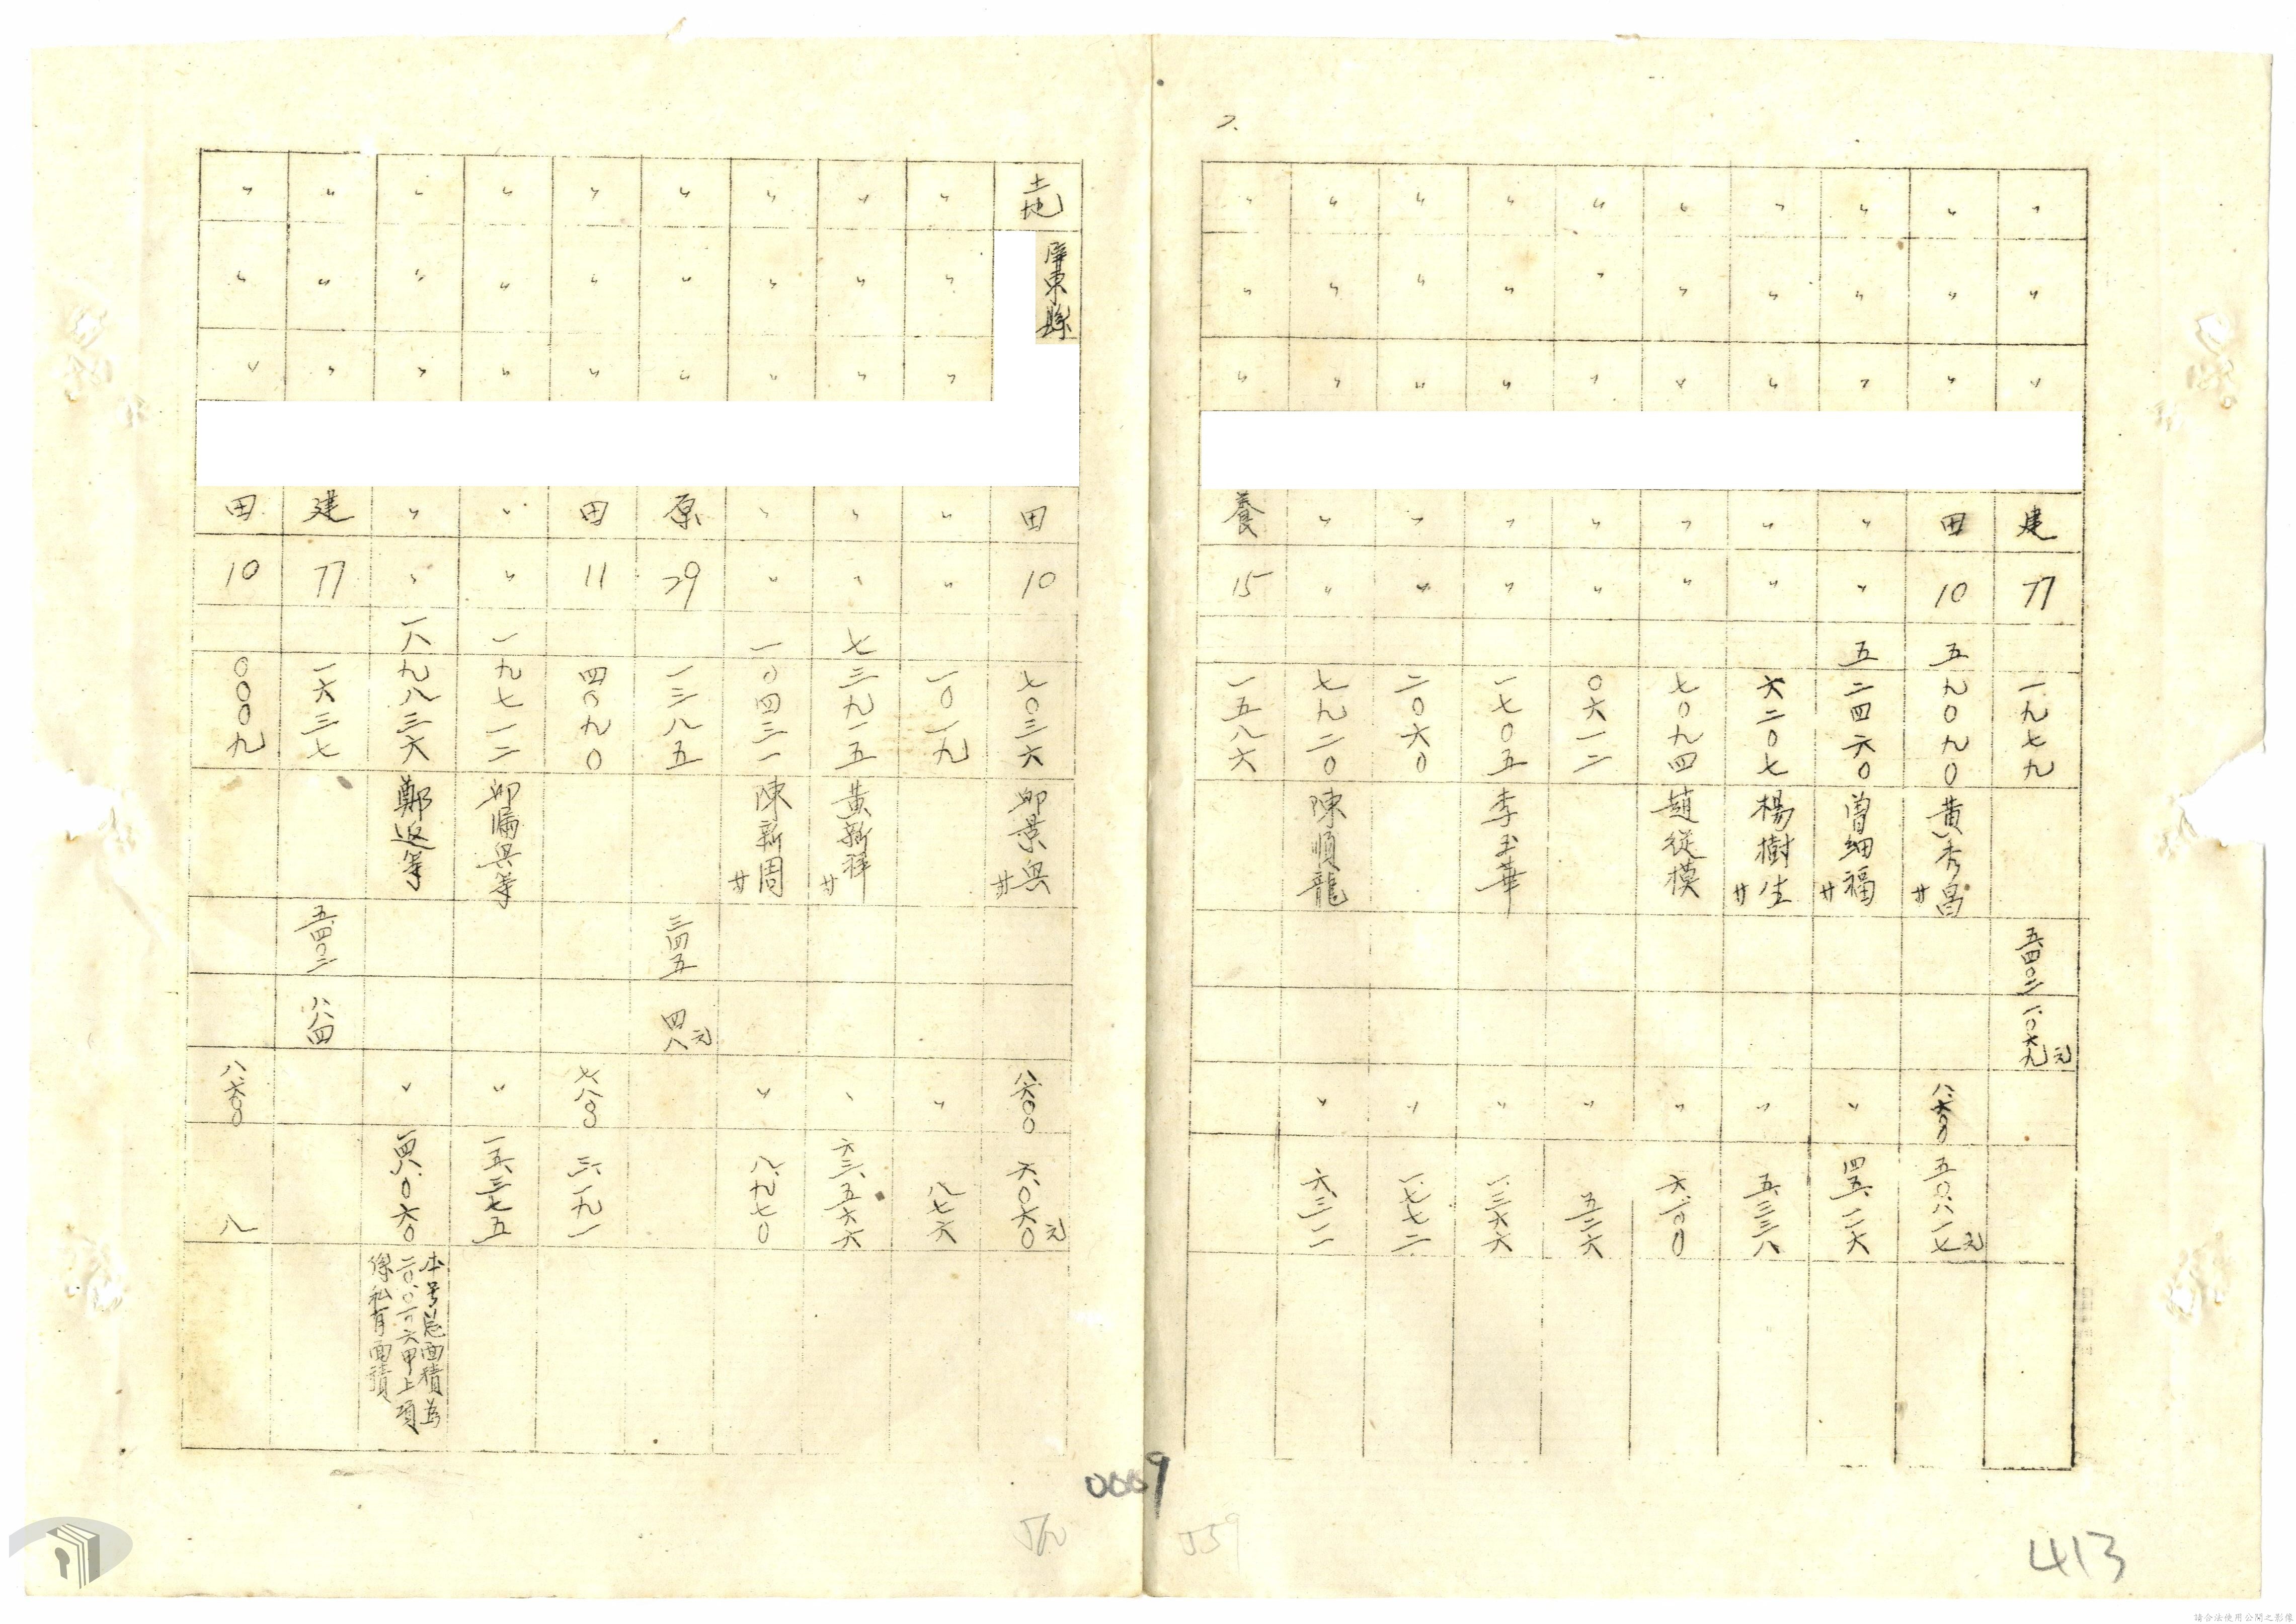 2.
〃 〃 〃 建 77 一九七九 五四〇二 一、〇六九元
〃 〃 〃 田 10 五九〇九〇 黃秀昌 廿 八、六〇〇 五〇、八一七元
〃 〃 〃 〃 〃 五二四六〇 曾細福 廿 〃 四五、一一六
〃 〃 〃 〃 〃 六二〇七 楊樹生 廿 〃 五、三三八
〃 〃 〃 〃 〃 七〇九四 趙從模 〃 六、一〇〇
〃 〃 〃 〃 〃 〇六一二 〃 五二六
〃 〃 〃 〃 〃 一七〇五 李玉華 〃 一、三六六
〃 〃 〃 〃 〃 二〇六〇 〃 一、七七二
〃 〃 〃 〃 〃 七九二〇 陳順龍 〃 六、三一一
〃 〃 〃 養 15 一五八六
土地 屏東縣 田 10 七〇三六 景興 廿 八、六〇〇 六、〇六〇元
〃 〃 〃 〃 〃 一〇一九 〃 八七六
〃 〃 〃 〃 〃 七三九一五 黃新祥 廿 〃 六三、五六六
〃 〃 〃 〃 〃 一〇四三一 陳新周 廿 〃 八、九七〇
〃 〃 〃 原 29 一三八五 三四五 四八元
〃 〃 〃 田 11 四〇九〇 七、八〇〇 三、一九一
〃 〃 〃 〃 〃 一九七一二 〃 一五、三七五
〃 〃 〃 〃 〃 一八九八三六 鄭返等 〃 一四八、〇六〇
本号總面積為
二〇、〇一一六甲上項
係私有面積
〃 〃 〃 建 77 一六三七 五四〇二 八八四
〃 〃 〃 田 10 〇〇〇九 八、六〇〇 八
0009
559
413
請合法使用公開之影像